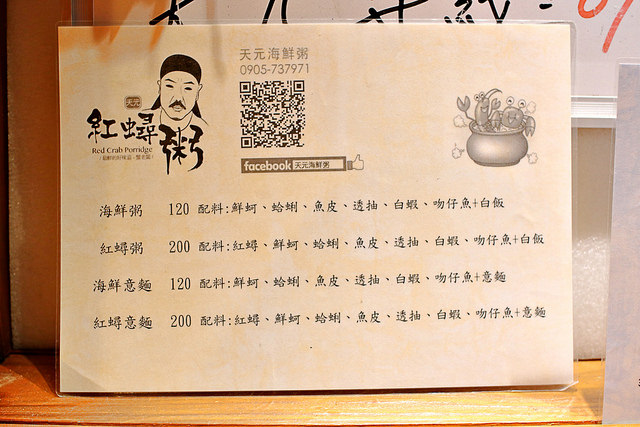 天元海鮮粥
0905-737971
天元
紅蟳粥
Red Crab Porridge
facebook 天元海鮮粥
海鮮粥 120 配料:鮮蚵、蛤蜊、魚皮、透抽、白蝦、吻仔魚+白飯
紅蟳粥 200 配料:紅蟳、鮮蚵、蛤蜊、魚皮、透抽、白蝦、吻仔魚+白飯
海鮮意麵 120 配料:鮮蚵、蛤蜊、魚皮、透抽、白蝦、吻仔魚+意麵
紅蟳意麵 200 配料:紅蟳、鮮蚵、蛤蜊、魚皮、透抽、白蝦、吻仔魚+意麵